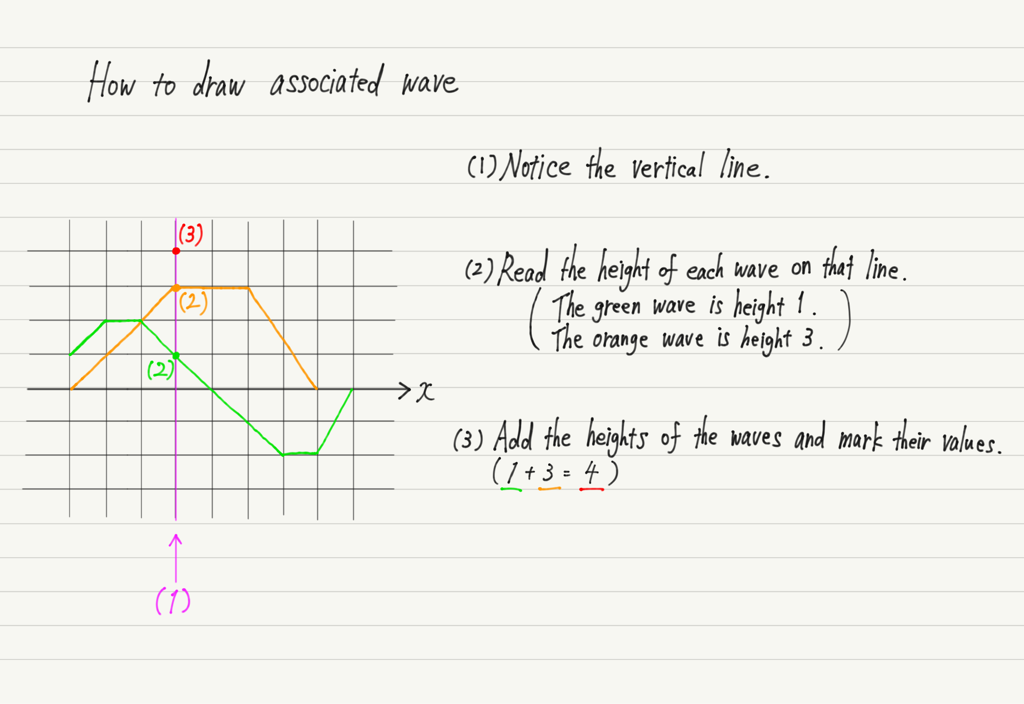 How to draw associated wave
(1) Notice the vertical line.
(2) Read the height of each wave on that line.
( The green wave is height 1.
The orange wave is height 3. )
(3) Add the heights of the waves and mark their values.
(1 + 3 = 4)
(3)
(2)
(2)
x
(1)